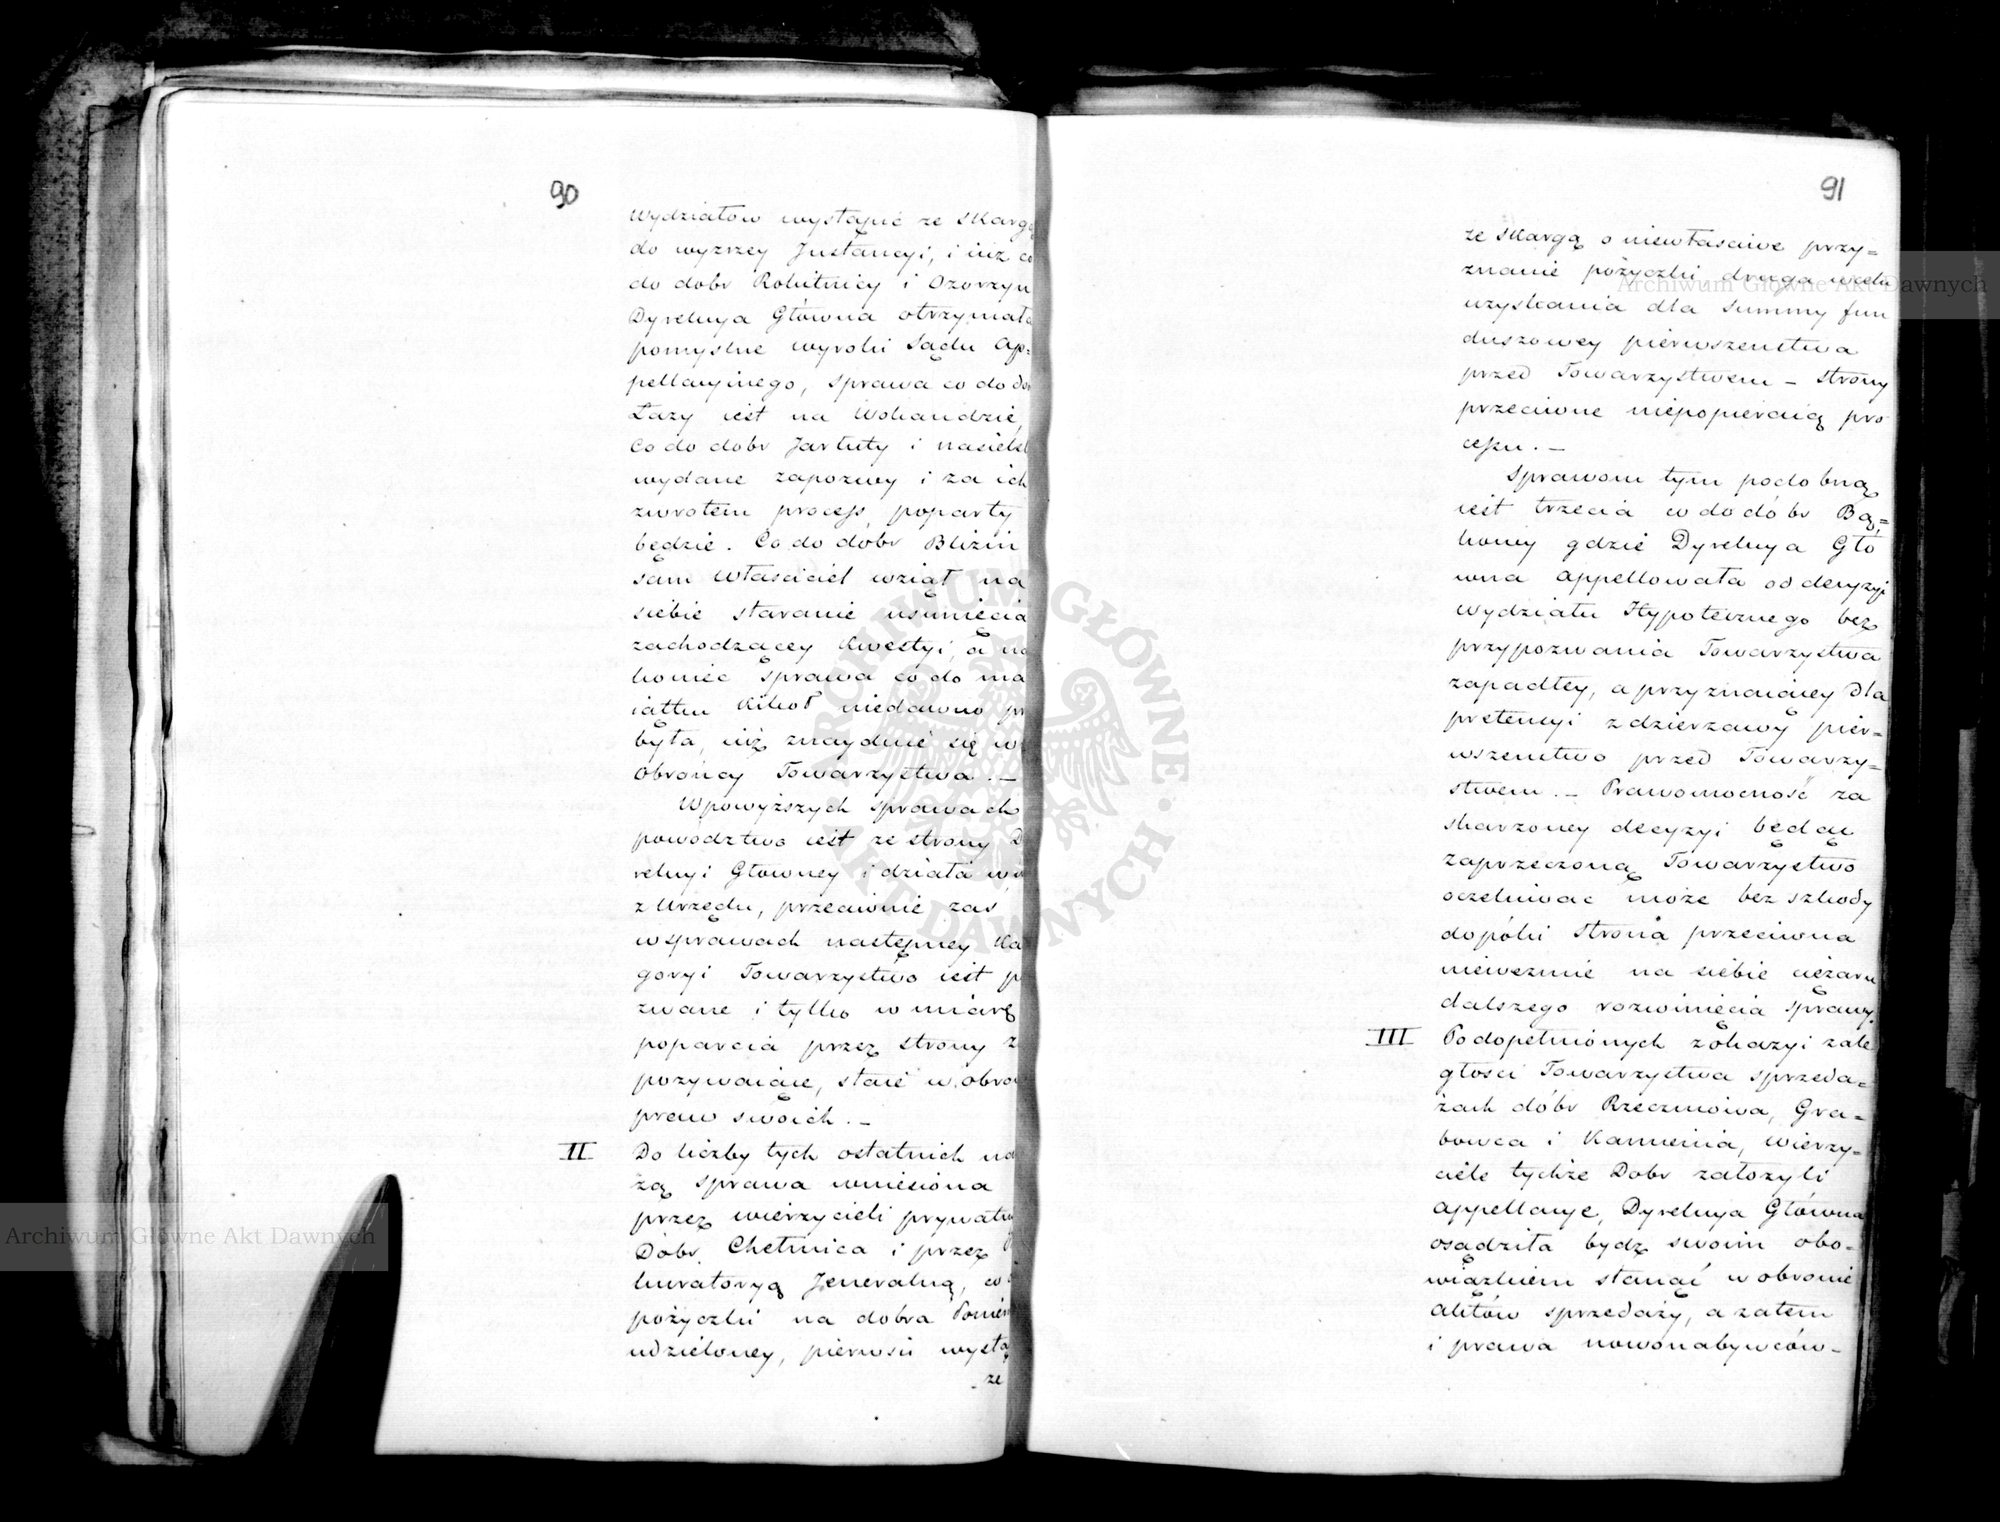 90
wydziałow wystąpić ze skargą
do wyzszey Jnstancyi, i iuż co
do dobr Rokitnicy i Ozorzyn
Dyrekcya Główna otrzymała
pomyslne wyroki Sądu Ap=
pellacyinego, sprawa co do dobr
Łazy iest na Wokandzie,
Co do dobr Jarłuty i nasielsk
wydane zapozwy i za ich
zwrotem process poparty
będzie. Co do dobr Blizin
sam właściciel wziął na
siebie staranie usunięcia
zachodzącey kwestyi, a na
koniec sprawa co do ma
iątku Kikoł niedawno przy
była, iuż znayduie się w
obrońcy Towarzystwa. —
W powyższych sprawach
powodztwo iest ze strony Dy
rekcyi Głowney i działa
z Urzędu, przeciwnie zaś
w sprawach następney Ka
goryi Towarzystwo iest po
zwane i tylko w miarę
poparcia przez strony za
pozywaiące, staie w obronie
praw swoich. —
II Do liczby tych ostatnich na
żą sprawa wniesiona
przez wierzycieli prywatn
Dobr Chełmica i przez Pro
kuratoryą Jeneralną, co do
pożyczki na dobra
udzieloney, pierwsii wystą
ze
91
ze skargą o niewłasciwe przy=
znanie pożyczki druga w celu
uzyskania dla Summy fun
duszowey pierwszenstwa
przed Towarzystwem — strony
przeciwne niepopieraią pro
cessu. —
Sprawom tym podobną
iest trzecia co do dóbr Bą=
kowy gdzie Dyrekcya Głó
wna appellowała od decyzyi
Wydziału Hypotecznego bez
przypozwania Towarzystwa
zapadłey, a przyznaiącey dla
pretensyi z dzierzawy pier=
wszenstwo przed Towarzy=
stwem. — Prawomocność za
skarzoney decyzyi będąc
zaprzeczoną Towarzystwo
oczekiwac może bez szkody
dopóki strona przeciwna
niewezmie na siebie ciężaru
dalszego rozwinięcia sprawy.
III Po dopełnionych z okazyi zale
głości Towarzystwa sprzeda=
żach dóbr Rzeczniowa, Gra=
bowca i Kamienia, Wierzy=
ciele tychże Dobr założyli
appellacye, Dyrekcya Główna
osądziła bydz swoim obo=
wiązkiem stanąć w obronie
aktów sprzedaży, a zatem
i prawa nowonabywców —
Archiwum Główne Akt Dawnych
Archiwum Główne Akt Dawnych
ARCHIWUM GŁÓWNE AKT DAWNYCH